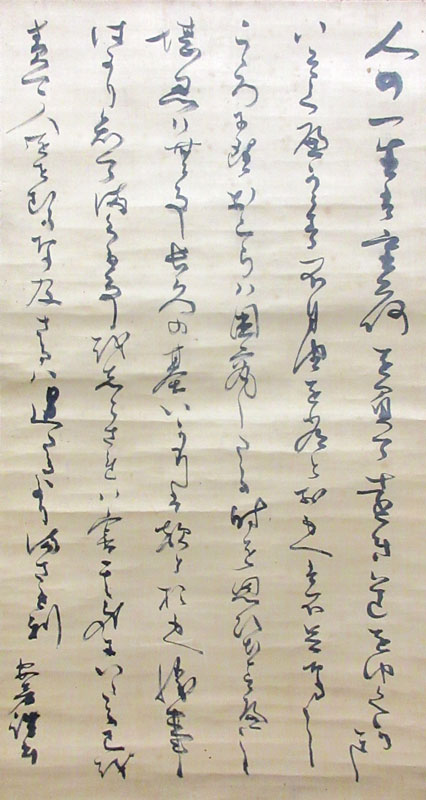 人の一生は重荷を負て遠き道をゆくかことし
いそくへからす不自由を常とおもへは不足なし
こゝろに望おこらハ困窮したる時を思ひ出すへし
堪忍ハ無事長久の基いかりは敵とおもへ勝事
はかり知てまくる事をしらされハ害其身にいたる己を
責て人をせむるな及さるハ過たるよりまされり